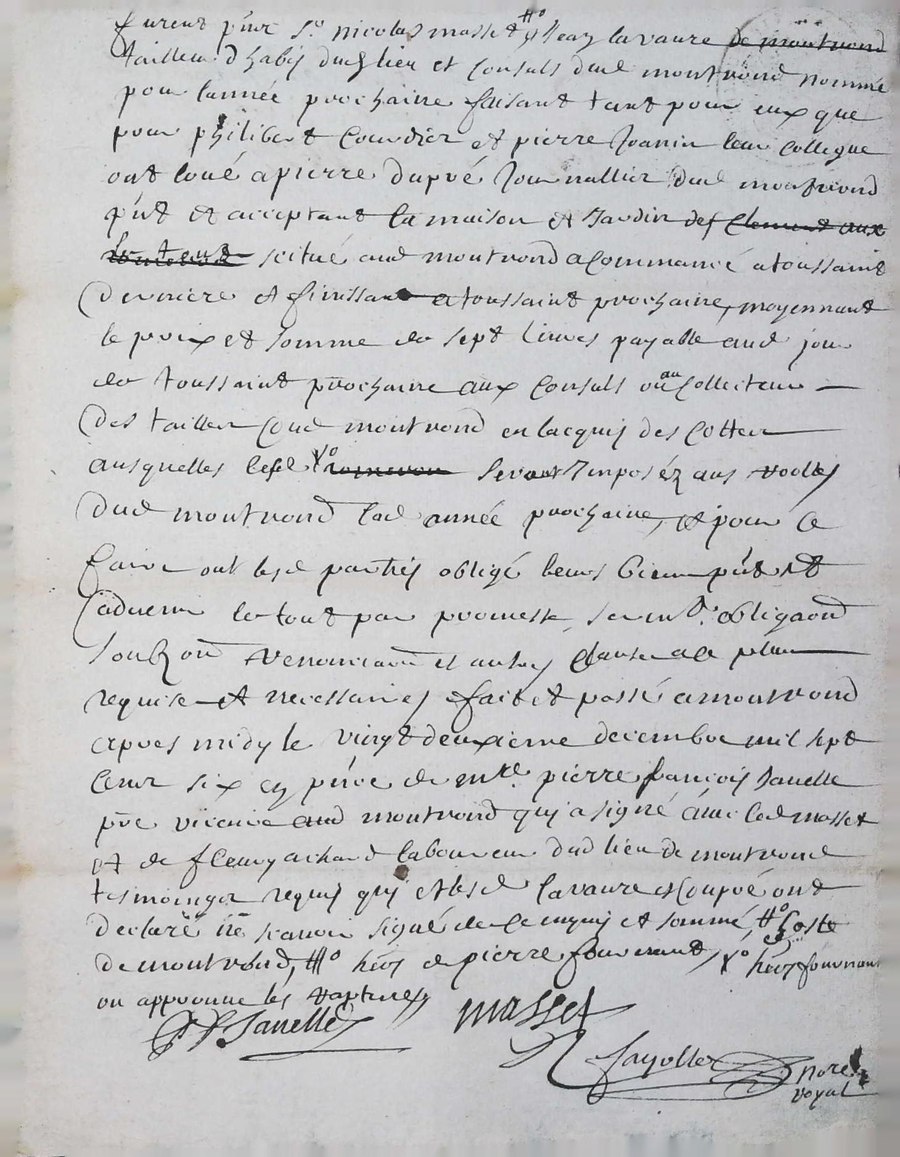 furent pnts sr nicolas masset # jean lavaure de montrond
tailleur dhabis dud lieu et consuls dud montrond nommé
pour lannée prochaine faisant tant pour eux que
pour philibert Courdier et pierre Joanin leur collegue
ont loué a pierre dupré journallier dud montrond
pnt et acceptant la maison et Jardin des Clement aux
scitué aud montrond a commancé a toussaint
derniere et finissant a toussaint prochaine, moyennant
le prix et somme de sept livres payable aud jour
de toussaint prochaine aux consuls ou au collecteur
des tailles dud montrond en lacquis des cottes
ausquelles lesd seront Imposéz aus roolles
dud montrond lad année prochaine, et pour ce
faire ont lesd parties obligé leurs biens pnts et
advenir le tout par promesse, serment, obligaon
soubzon renonciaon et autres clause a ce plus
requise et necessaires fait et passé a montrond
apres midy le vingt deuxieme decembre mil sept
cent six en pnce de mre pierre françois Janelle
pre vicaire aud montrond qui a signé avec led masset
et de fleury achard laboureur dud lieu de montrond
tesmoings requis qui et lesd lavaure et dupré ont
declaré ne scavoir signé de ce enquis et sommé, # hoste
de montrond, # hers de pierre fournand, hers fournand
on approuve les rapture
P F Janelle masset
fayolle nore
royal